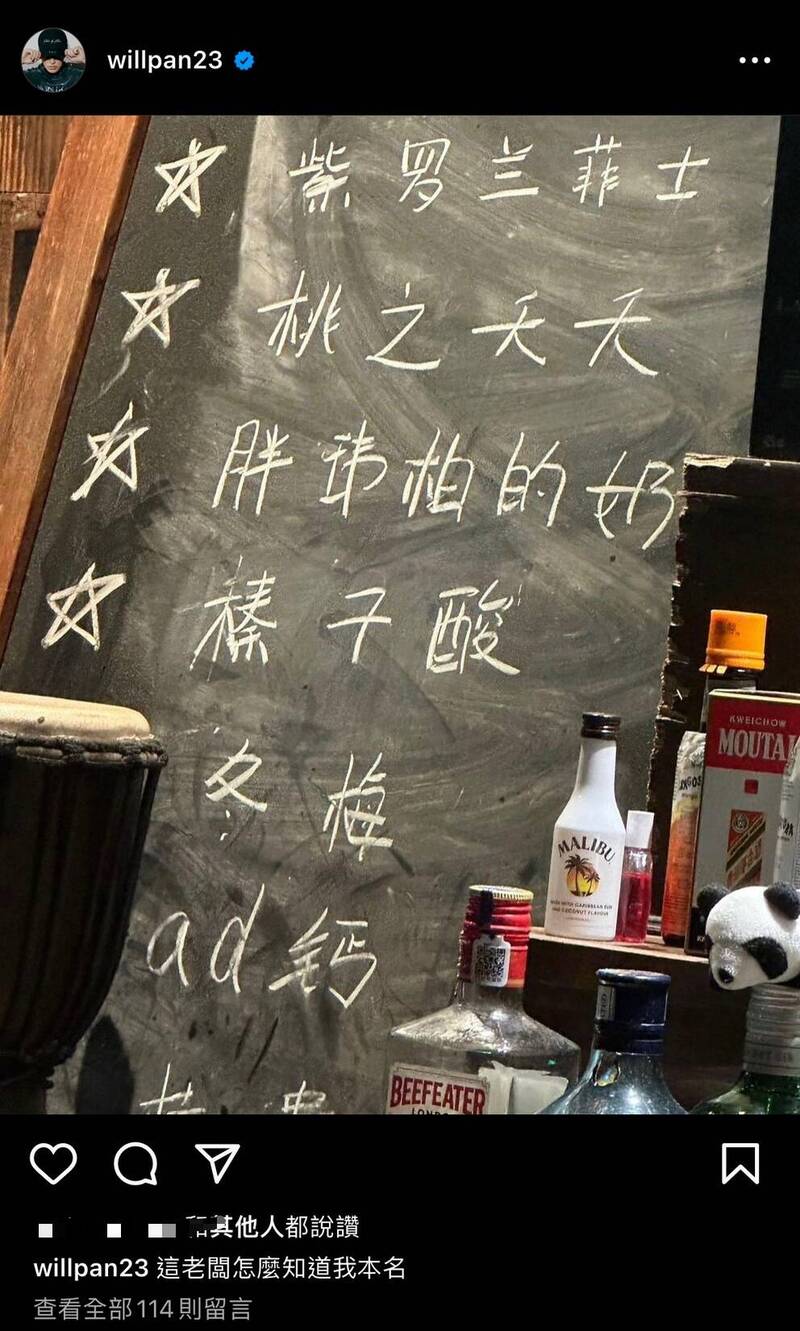 willpan23
紫罗兰菲士
桃之夭夭
胖玮柏的奶
榛子酸
冬梅
ad钙
KWEICHOW
MOUTAI
MALIBU
BEEFEATER
LONDON
和其他人都說讚
willpan23 這老闆怎麼知道我本名
查看全部114則留言